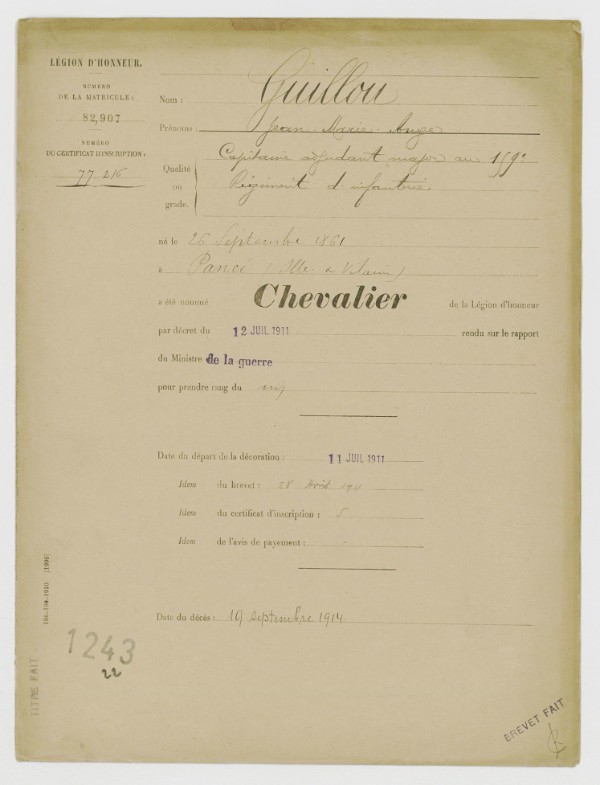 LÉGION D'HONNEUR.
NUMÉRO
DE LA MATRICULE :
82,907
NUMÉRO
DU CERTIFICAT D'INSCRIPTION :
77.216
Nom : Guillou
Prénoms : Jean Marie Ange
Qualité ou grade. Capitaine adjudant major au 159e
Régiment d'infanterie
né le 26 Septembre 1861
à Pancé (Ille & Vilaine)
a été nommé Chevalier de la Légion d'honneur
par décret du 12 JUIL 1911 rendu sur le rapport
du Ministre de la guerre
pour prendre rang du
Date du départ de la décoration : 11 JUIL 1911
Idem du brevet : 28 Août 1911
Idem du certificat d'inscription :
Idem de l'avis de payement :
Date du décès : 19 septembre 1914
1243
22
TITRE FAIT.
BREVET FAIT